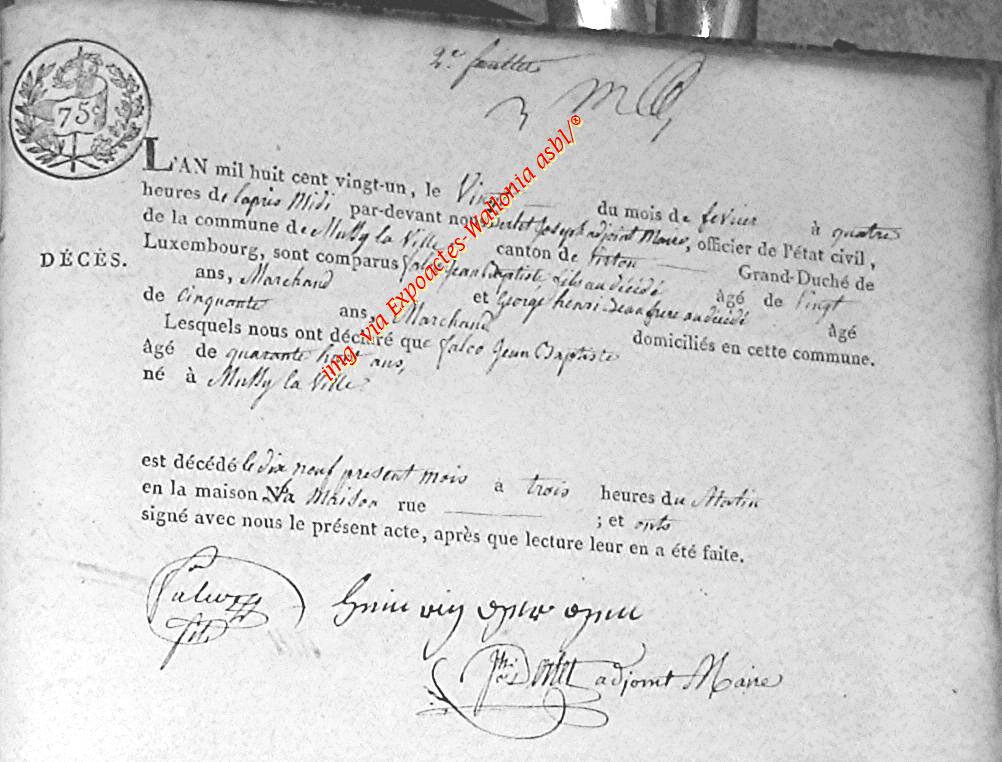 2e feuillet
75c
L'AN mil huit cent vingt-un, le Vingt du mois de fevrier à quatre
heures de lapris Midi par-devant nous Dertet Joseph adjoint Maire, officier de l'état civil,
de la commune de Mussy la Ville canton de Virton Grand-Duché de
DÉCÈS.
Luxembourg, sont comparus falco Jean Baptiste fils au décédé âgé de vingt
ans, Marchand et George henri Beaufrere au décédé âgé
de Cinquante ans, Marchand domiciliés en cette commune.
Lesquels nous ont déclaré que falco Jean Baptiste
âgé de quarante ans,
né à Mussy la Ville
est décédé le dix neuf present mois à trois heures du Matin
en la maison Sa Maison rue ; et onts
signé avec nous le présent acte, après que lecture leur en a été faite.
adjoint Maire
img. via Expoactes-Wallonia asbl/®